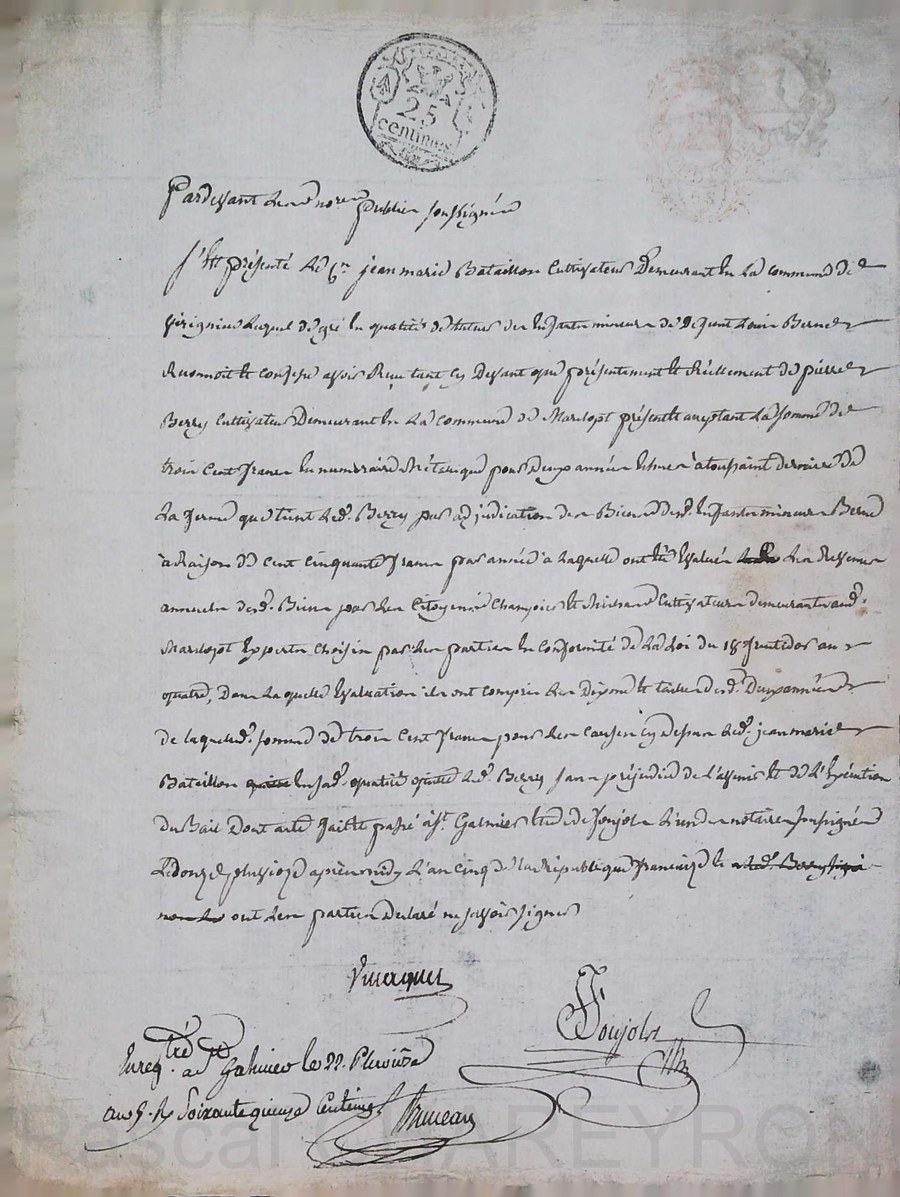 25
centimes
Pardevant les no.res publics soussignés
S'est présenté le C.n jean marie Bataillon Cultivateur Demeurant en la commune de
lequel de gré en qualité de tuteur des Enfants mineurs de Defunt Louis Berne
Reconnoit et confesse avoir Reçu tant cy Devant que présentement et Réellement de pierre
Berry Cultivateur Demeurant en la commune de Marclopt présent et acceptant la somme de
trois Cent francs en numéraire Métalique pour deux années Echues à toussaint derniere de
La ferme que tient led. Berry par adjudication des Biens desd. Enfants mineurs Berne
à Raison de Cent Cinquante francs par année à laquelle ont été Evalués les Revenus
annuels desd. Biens par les Citoyens Champier et Cultivateurs demeurants aud.
Marclopt Experts choisis par les parties En Conformité de la Loi du 18 fructidor an
quatre, Dans laquelle Evaluation ils ont compris les et desd. Deux années
de laquelle d. somme de trois Cent francs pour les Causes cy dessus led. jean marie
Bataillon en sad. qualité quitte led. Berry sans préjudice de l'avenir et de l'Exécution
du Bail Dont acte fait et passé à S.t Galmier étude de Poujols L'un des notaires soussignés
Le douze pluviose après midy L'an cinq de la République francaise et
ont les parties Declaré ne savoir signer
Poujols
Enreg.tré à S.t Galmier le 22. Pluviôse
an 5. R Soixante quinze Centimes Bruneau
Pascal CHAREYRON